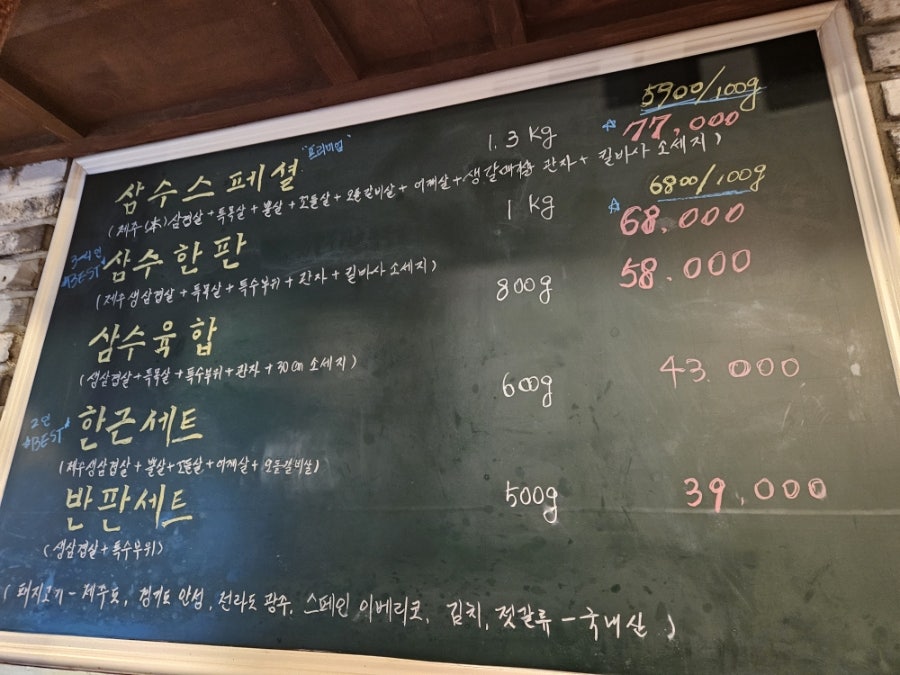 5900/100g
"프리미엄"
삼수스페셜 1.3kg ☆77,000
(제주(本)삼겹살+특목살+뽈살+꼬들살+오돌갈비살+어깨살+생갈매살 관자+킬바사 소세지)
6800/100g
3~4인 ☆BEST☆ 삼수한판 1kg ☆68.000
(제주생삼겹살+특목살+특수부위+관자+킬바사소세지)
삼수육합 800g 58.000
(생삼겹살+특목살+특수부위+관자+30cm 소세지)
2인 ☆BEST☆ 한근세트 600g 43.000
(제주생삼겹살+뽈살+꼬들살+어깨살+오돌갈비살)
반판세트 500g 39.000
(생삼겹살+특수부위)
(돼지고기-제주도, 경기도 안성, 전라도 광주, 스페인 이베리코, 김치, 젓갈류-국내산)